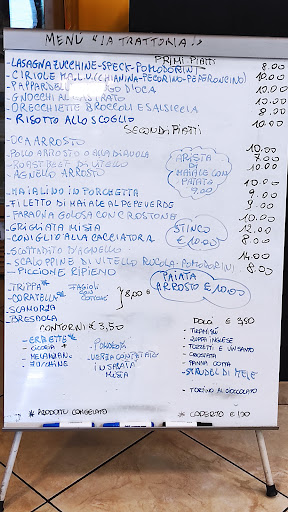 MENU "LA TRATTORIA"
PRIMI PIATTI
- LASAGNA ZUCCHINE - SPECK - POMODORINI 8.00
- CIRIOLE M.A.L.U. (CHIANINA - PECORINO - PEPERONCINO) 10.00
- PAPPARDELLE D'OCA 10.00
- GNOCCHI AL CASTRATO 10.00
- ORECCHIETTE BROCCOLI E SALSICCIA 8.00
- RISOTTO ALLO SCOGLIO 10.00
SECONDI PIATTI
- OCA ARROSTO 10.00
- POLLO ARROSTO O ALLA DIAVOLA 7.00
- ROAST BEEF DI VITELLO 10.00
- AGNELLO ARROSTO 10.00
ARISTA
DI
MAIALE CON
PATATE
9.00
- MAIALINO IN PORCHETTA 9.00
- FILETTO DI MAIALE AL PEPE VERDE 9.00
- FARAONA GOLOSA CON CROSTONE 10.00
- GRIGLIATA MISTA 12.00
- CONIGLIO ALLA CACCIATORA 8.00
STINCO
€ 10.00
- SCOTTADITO D'AGNELLO 14.00
- SCALOPPINE DI VITELLO RUCOLA - POMODORINI 8.00
- PICCIONE RIPIENO
PAIATA
ARROSTO € 10.00
- TRIPPA
- CORATELLA
FAGIOLI
CON
COTICHE
8,00
- SCAMORZA
- BRESAOLA
CONTORNI € 3,50
- ERBETTE
- CICORIA
- MELANZANE
- ZUCCHINE
- POMODORI
- VERZA CON PATATE
- INSALATA
MISTA
DOLCI € 3,50
- TIRAMISÙ
- ZUPPA INGLESE
- TOZZETTI E VINSANTO
- CROSTATA
- PANNA COTTA
- STRUDEL DI MELE
- TORTINO AL CIOCCOLATO
* PRODOTTO CONGELATO
* COPERTO € 1,00